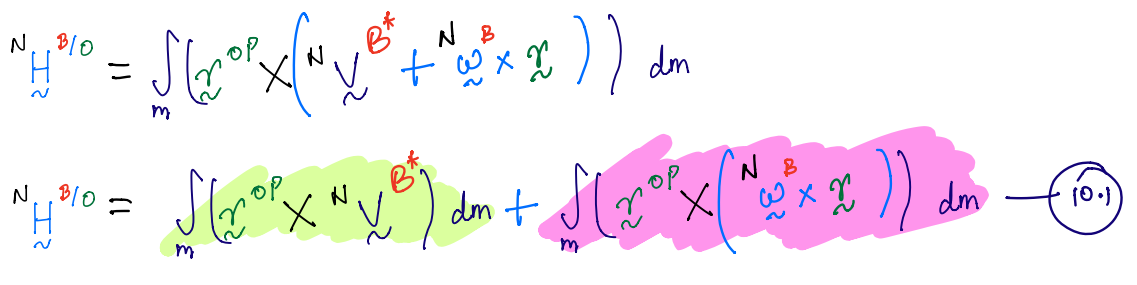 ᴺH̰ᴮ/ᴼ = ∫ₘ (r̰ᴼᴾ × (ᴺV̰ᴮ* + ᴺω̰ᴮ × r̰)) dm
ᴺH̰ᴮ/ᴼ = ∫ₘ (r̰ᴼᴾ × ᴺV̰ᴮ*) dm + ∫ₘ (r̰ᴼᴾ × (ᴺω̰ᴮ × r̰)) dm — 10.1